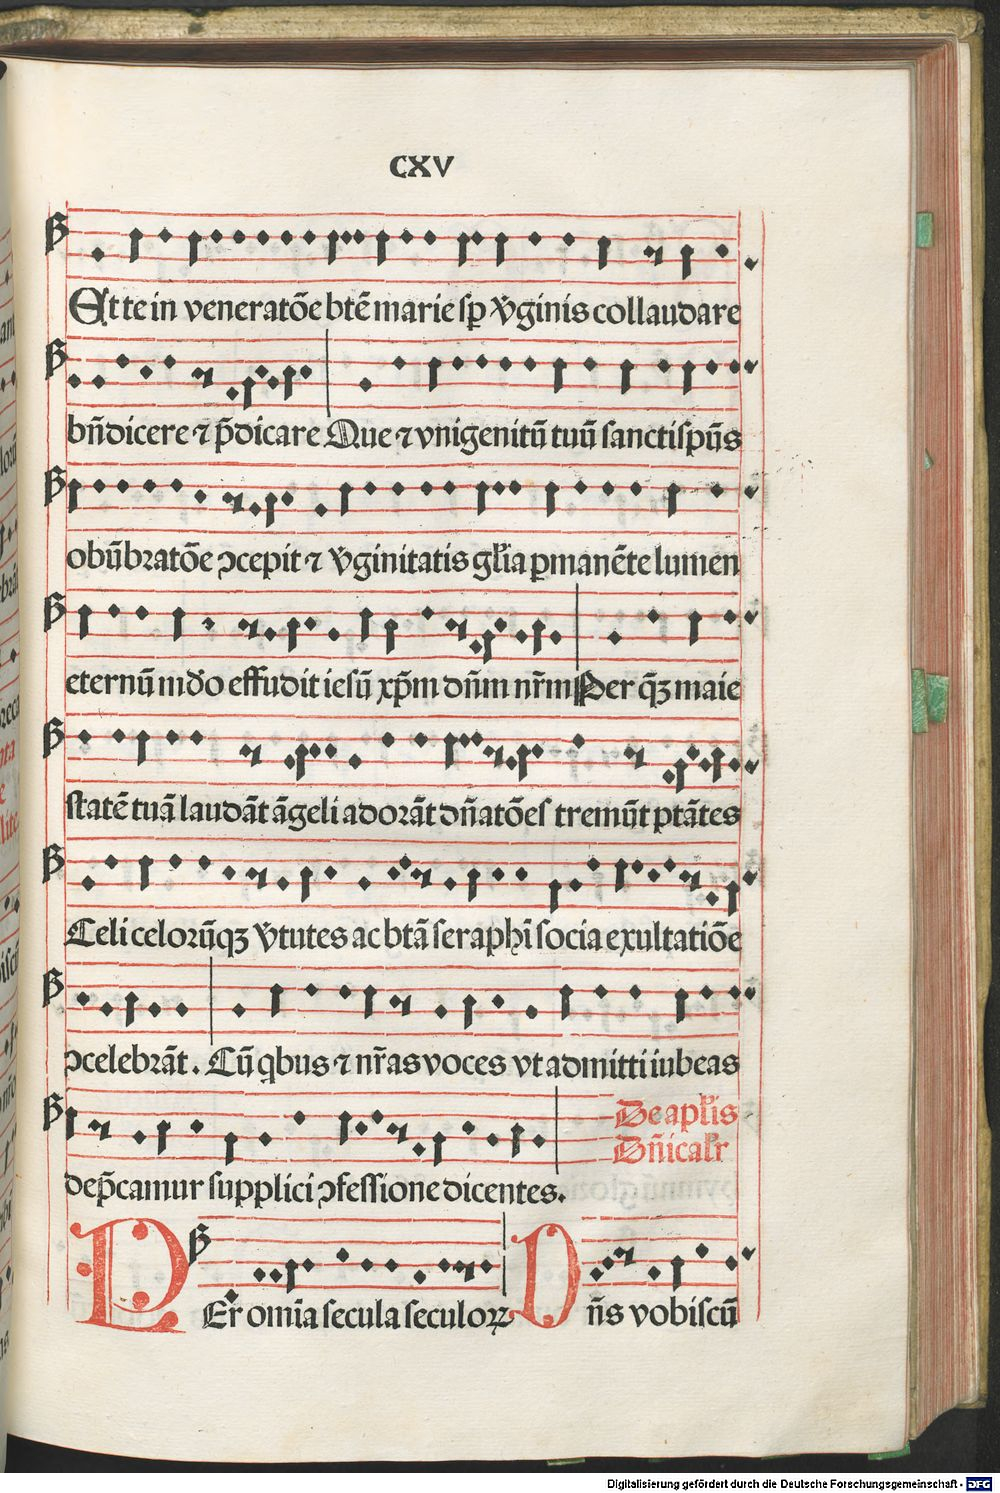 CXV
Et te in veneratōe btē marie sꝑ v̓ginis collaudare
bn̄dicere ⁊ p̄dicare Que ⁊ vnigenitū tuū sancti spūs
obūbratōe ɔcepit ⁊ v̓ginitatis gl̓ia ꝑmanēte lumen
eternū mūdo effudit iesū xp̄m dn̄m nr̄m Per qꝫ maie
statē tuā laudāt āgeli adorāt dn̄atōes tremūt ptātes
Celi celorūqꝫ v̓tutes ac btā seraphī socia exultatiōe
ɔcelebrāt. Cū qbus ⁊ nr̄as voces vt admitti iubeas
De apl̓is
Dn̄icalr
dep̄camur supplici ɔfessione dicentes.
PEr om̄ia secula seculoꝝ Dn̄s vobiscū
Digitalisierung gefördert durch die Deutsche Forschungsgemeinschaft - DFG